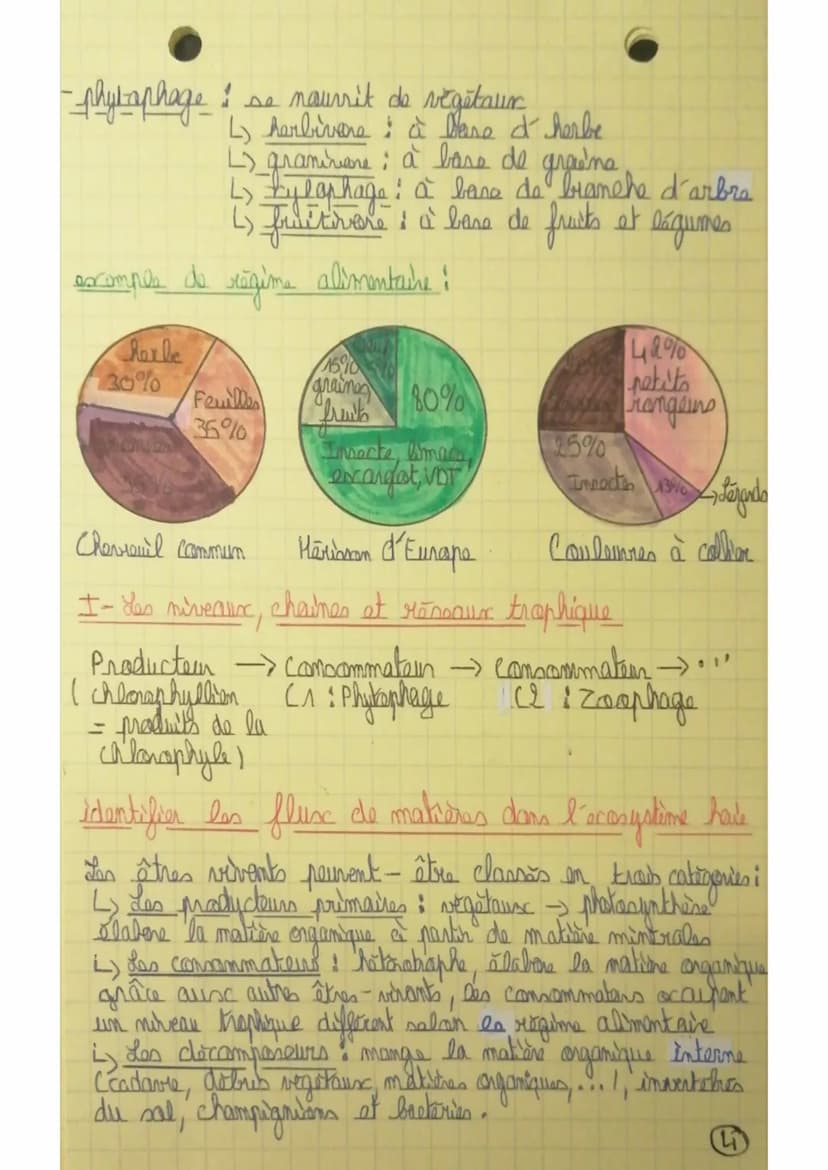 - phytophage : se nourrit de végétaux
↳ herbivore : à base d'herbe
↳ granivore : à base de graine
↳ xylophage : à base de branche d'arbre
↳ fruitivore : à base de fruits et légumes
exemple de régime alimentaire :
herbe
30%
Feuilles
35%
15%
graines
fruits
80%
Insecte, limace,
escargot, VDT
42%
petits
rongeurs
25%
Insectes
13%
→ Lézards
Chevreuil commun
Hérisson d'Europe
Couleuvres à collier
I- Les niveaux, chaines et réseaux trophique
Producteur → Consommateur → Consommateur → ...
( chlorophyllien
C1 : Phytophage
C2 : Zoophage
= produits de la
chlorophyle )
identifier les flux de matières dans l'écosystème haie
Les êtres vivents peuvent-être classés en trois catégories :
↳ Les producteurs primaires : végétaux → photosynthèse
élabore la matière organique à partir de matière minérales
↳ Les consommateurs : hétérotophe, élabore la matière organique
grâce aux autres êtres-vivants, les consommateurs occupent
un niveau trophique différent selon le régime alimentaire
↳ Les décomposeurs : mange la matière organique interne
(cadavre, débris végétaux, matières organiques, ... ), invertebrés
du sol, champignions et bactéries.
4